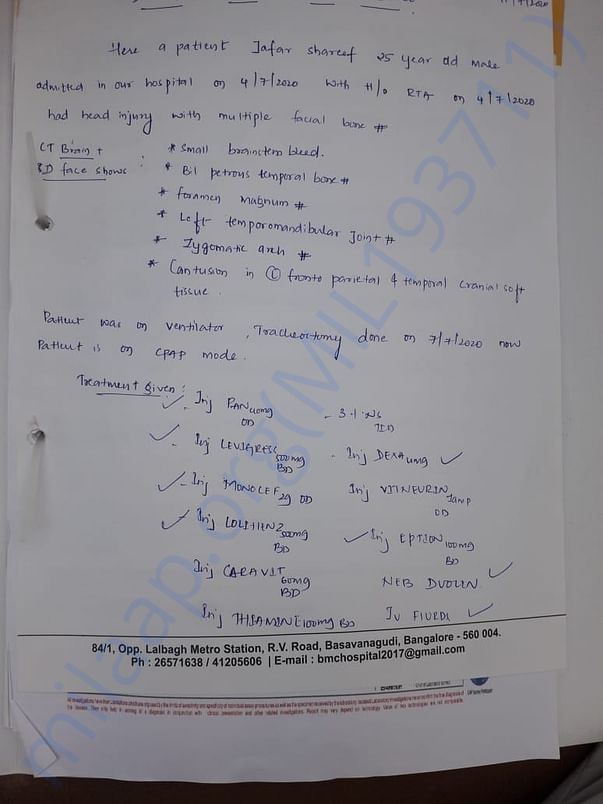 11/7/2020
Here a patient Jafar shareef 25 year old male
admitted in our hospital on 4/7/2020 with H/o RTA on 4/7/2020
had head injury with multiple facial bone #
CT Brain +
3D face shows :
* small brainstem bleed.
* B/l petrous temporal bone #
* foramen magnum #
* Left temporomandibular Joint #
* Zygomatic arch #
* Contusion in (L) fronto parietal & temporal cranial soft
tissue.
Patient was on ventilator, Tracheostomy done on 7/7/2020 now
Patient is on CPAP mode.
Treatment given :
- Inj PAN 40mg OD
- 3% NS TID
- Inj LEVIGRESS 500mg BD
- Inj DEXA 4mg
- Inj MONOCEF 2g OD
Inj VITNEURIN 1amp OD
- Inj 500mg BD
Inj EPTION 100mg BD
Inj 60mg BD
NEB DUOLIN
Inj THIAMINE 100mg BD
IV
84/1, Opp. Lalbagh Metro Station, R.V. Road, Basavanagudi, Bangalore - 560 004.
Ph : 26571638 / 41205606 | E-mail : bmchospital2017@gmail.com
milaap.org(MIL193711)